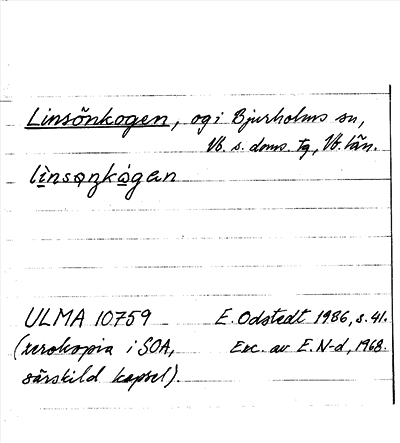 Linsönkogen, og i Bjurholms sn,
Vb. s. doms. tg, Vb. län.
lìnsǫŋkògan
ULMA 10759 E. Odstedt 1936, s. 41.
(xerokopia i SOA, Exc. av E. N-d, 1968.
särskild kapsel).